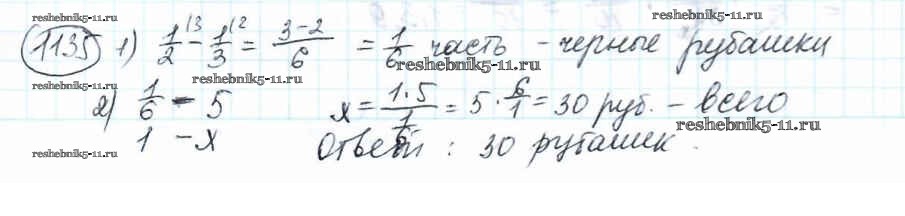 reshebnik5-11.ru reshebnik5-11.ru reshebnik5-11.ru
1135 1) 1/2 |3 - 1/3 |2 = (3-2)/6 = 1/6 часть - черные рубашки
reshebnik5-11.ru reshebnik5-11.ru reshebnik5-11.ru
reshebnik5-11.ru reshebnik5-11.ru
2) 1/6 - 5 x = (1·5)/(1/6) = 5 · 6/1 = 30 руб. - всего
reshebnik5-11.ru
1 - x Ответ: 30 рубашек.
reshebnik5-11.ru reshebnik5-11.ru